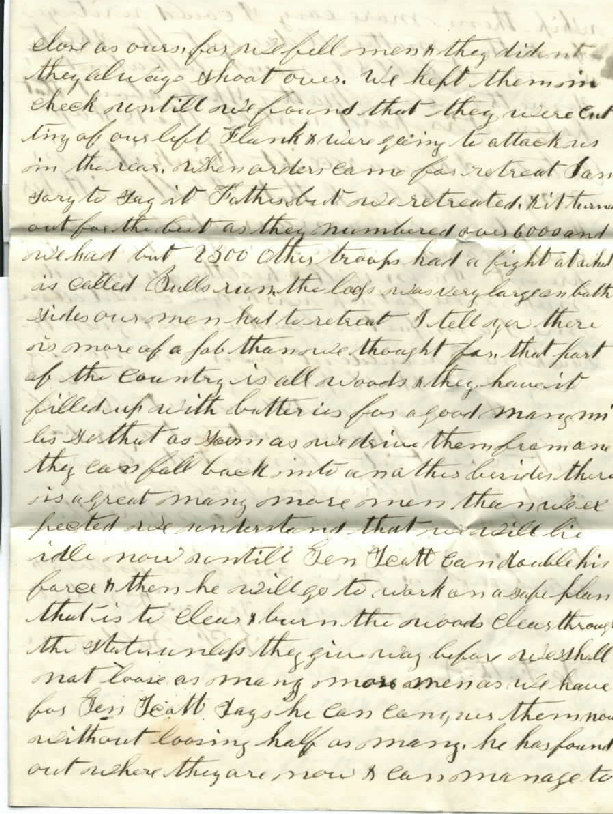 close as ours, for we fell men & they didnt
they always shoot over. We kept them in
check untill we found that they were cut
ting of our left Flank & were going to attack us
in the rear. When orders came for retreat I am
sory to say it Father but we retreated. & it turned
out for the best as they numbered over 6000 and
we had but 2300 other troops had a fight at what
is called Bulls run, the loss was very large on both
sides our men had to retreat I tell you there
is more of a job than we thought for, that part
of the Country is all woods & they have it
filled up with batteries for a good many mi
les so that as soon as we drive them from one
they can fall back into another besides there
is a great many more men than we ex
pected we understand that we will lie
idle now untill Gen Scott can double his
force & then he will go to work on a safe plan
that is to clear & burn the woods clear through
the state unless they give way before we shall
not loose as many more men as we have
for Gen Scott says he can conquer them now
without loosing half as many, he has found
out where they are now & can manage to